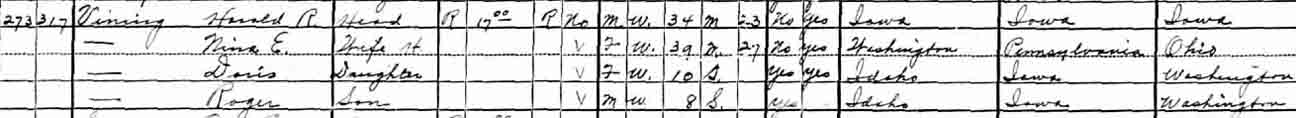 273 317 Vining Harold R Head R 17⁰⁰ R No M W. 34 M 23 No Yes Iowa Iowa Iowa
— Nina E. Wife H V F W. 39 M. 27 No yes Washington Pennsylvania Ohio
— Doris Daughter V F W. 10 S. Yes Yes Idaho Iowa Washington
— Roger Son V M W. 8 S. Yes Idaho Iowa Washington